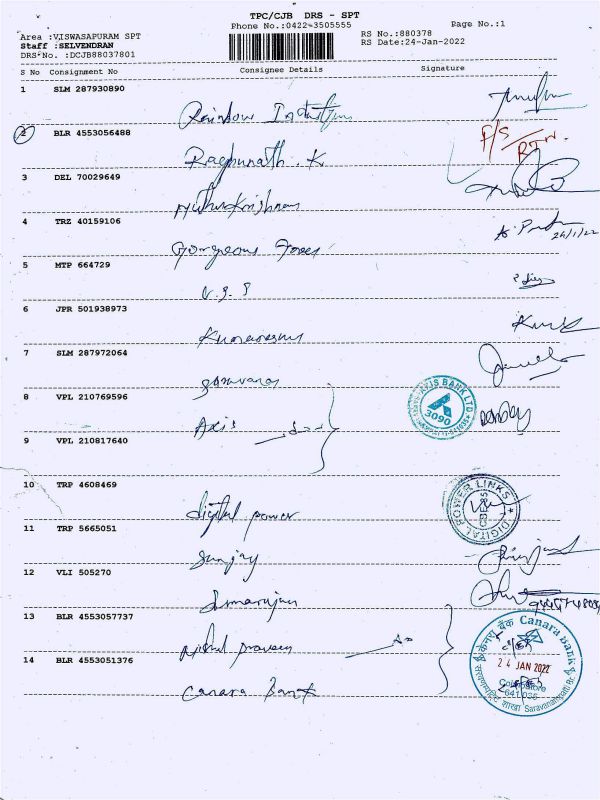 TPC/CJB DRS - SPT
Phone No.:0422-3505555
Page No.:1
Area :VISWASAPURAM SPT
Staff :SELVENDRAN
DRS No. :DCJB88037801
RS No.:880378
RS Date:24-Jan-2022
S No Consignment No Consignee Details Signature
1 SLM 287930890
Rainbow
2 BLR 4553056488
Ragunath. K
3 DEL 70029649
Muthukrishnan
4 TRZ 40159106
Gorgeous
24/1/22
5 MTP 664729
V.S.P
6 JPR 501938973
Kumaresan
7 SLM 287972064
8 VPL 210769596
Axis
AXIS BANK LTD
3090
9 VPL 210817640
10 TRP 4608469
digital power
DIGITAL POWER LINKS
11 TRP 5665051
Sunjay
12 VLI 505270
13 BLR 4553057737
praveen
14 BLR 4553051376
Canara Bank
केनरा बैंक Canara Bank
24 JAN 2022
Coimbatore
641 035
Saravanampatti Br.